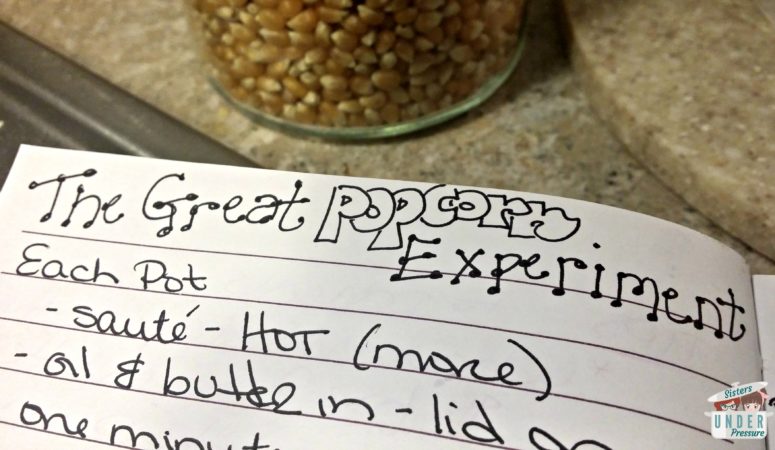 The Great Popcorn
Experiment
Each Pot
- sauté - Hot (more)
- oil & butter in - lid on
one minute
Sisters
UNDER
Pressure